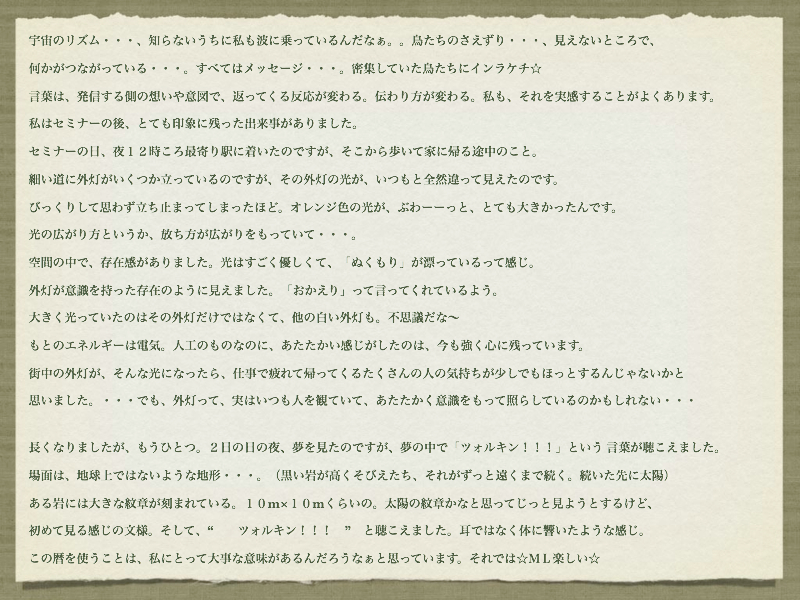 宇宙のリズム・・・、知らないうちに私も波に乗っているんだなぁ。。鳥たちのさえずり・・・、見えないところで、
何かがつながっている・・・。すべてはメッセージ・・・。密集していた鳥たちにインラケチ☆
言葉は、発信する側の想いや意図で、返ってくる反応が変わる。伝わり方が変わる。私も、それを実感することがよくあります。
私はセミナーの後、とても印象に残った出来事がありました。
セミナーの日、夜１２時ころ最寄り駅に着いたのですが、そこから歩いて家に帰る途中のこと。
細い道に外灯がいくつか立っているのですが、その外灯の光が、いつもと全然違って見えたのです。
びっくりして思わず立ち止まってしまったほど。オレンジ色の光が、ぶわーーっと、とても大きかったんです。
光の広がり方というか、放ち方が広がりをもっていて・・・。
空間の中で、存在感がありました。光はすごく優しくて、「ぬくもり」が漂っているって感じ。
外灯が意識を持った存在のように見えました。「おかえり」って言ってくれているよう。
大きく光っていたのはその外灯だけではなくて、他の白い外灯も。不思議だな〜
もとのエネルギーは電気。人工のものなのに、あたたかい感じがしたのは、今も強く心に残っています。
街中の外灯が、そんな光になったら、仕事で疲れて帰ってくるたくさんの人の気持ちが少しでもほっとするんじゃないかと
思いました。・・・でも、外灯って、実はいつも人を観ていて、あたたかく意識をもって照らしているのかもしれない・・・
長くなりましたが、もうひとつ。２日の日の夜、夢を見たのですが、夢の中で「ツォルキン！！！」という 言葉が聴こえました。
場面は、地球上ではないような地形・・・。（黒い岩が高くそびえたち、それがずっと遠くまで続く。続いた先に太陽）
ある岩には大きな紋章が刻まれている。１０ｍ×１０ｍくらいの。太陽の紋章かなと思ってじっと見ようとするけど、
初めて見る感じの文様。そして、“　ツォルキン！！！　” と聴こえました。耳ではなく体に響いたような感じ。
この暦を使うことは、私にとって大事な意味があるんだろうなぁと思っています。それでは☆ＭＬ楽しい☆